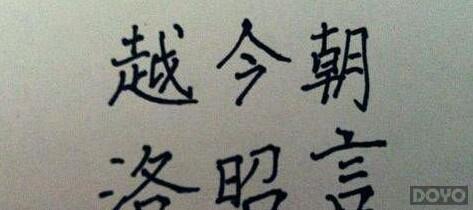 越今朝
洛昭言
DOYO